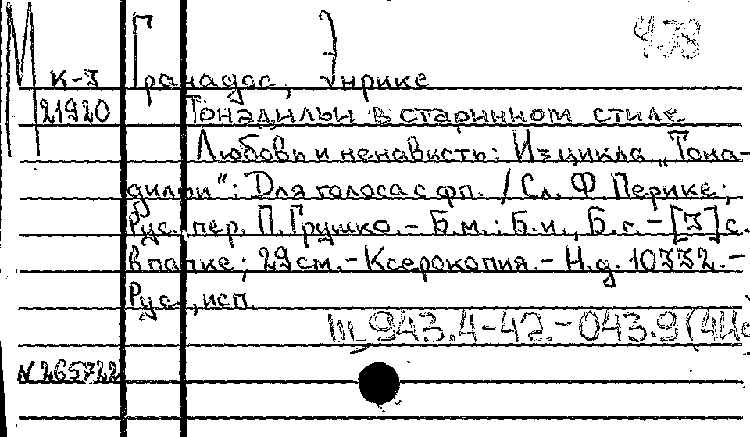 М
438
К-3
Гранадос, Энрике
21920
Тонадильи в старинном стиле
Любовь и ненависть: Из цикла „Тона-
дильи": Для голоса с фп. / Сл. Ф Перике;
Рус. пер. П. Грушко. - Б.м.: Б.и., Б.г. - [3] с.
в папке; 29 см. - Ксерокопия. - Н.д. 10332. -
Рус., исп.
Ш 943.4-42. - 043.9 (4Ис
N 265722